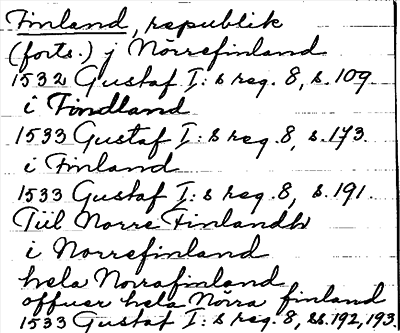 Finland, republik
(forts.) j Nörrefinland
1532 Gustaf I:s reg. 8, s. 109.
i Findland
1533 Gustaf I:s reg. 8, s. 173.
i Finland
1533 Gustaf I:s reg. 8, s. 191.
Till Norre Finlandh
i Norrefinland
hela Norrafinland
offuer hela Nörra finland
1533 Gustaf I:s reg. 8, ss. 192, 193.